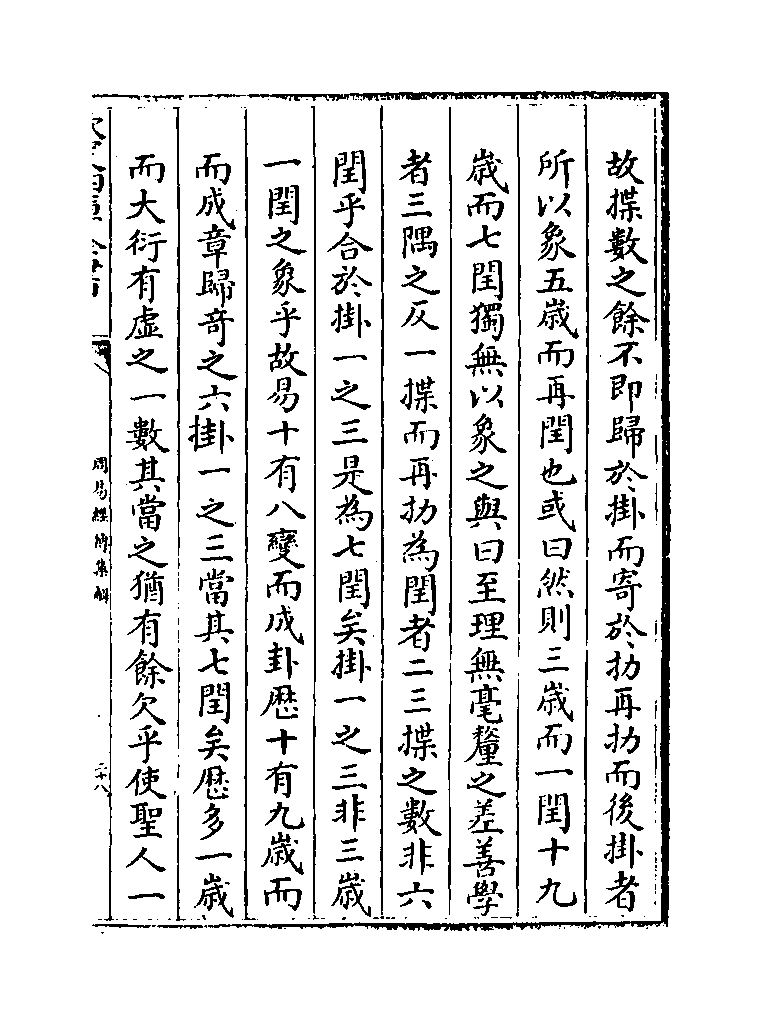 故揲數之餘不即歸於掛而寄於扐再扐而後掛者
所以象五歲而再閏也或曰然則三歲而一閏十九
歲而七閏獨無以象之與曰至理無毫釐之差善學
者三隅之反一揲而再扐為閏者二三揲之數非六
閏乎合於掛一之三是為七閏矣掛一之三非三歲
一閏之象乎故易十有八變而成卦厯十有九歲而
而成章歸竒之六掛一之三當其七閏矣厯多一歲
而大衍有虛之一數其當之猶有餘欠乎使聖人一
周易經傳集解
三十八